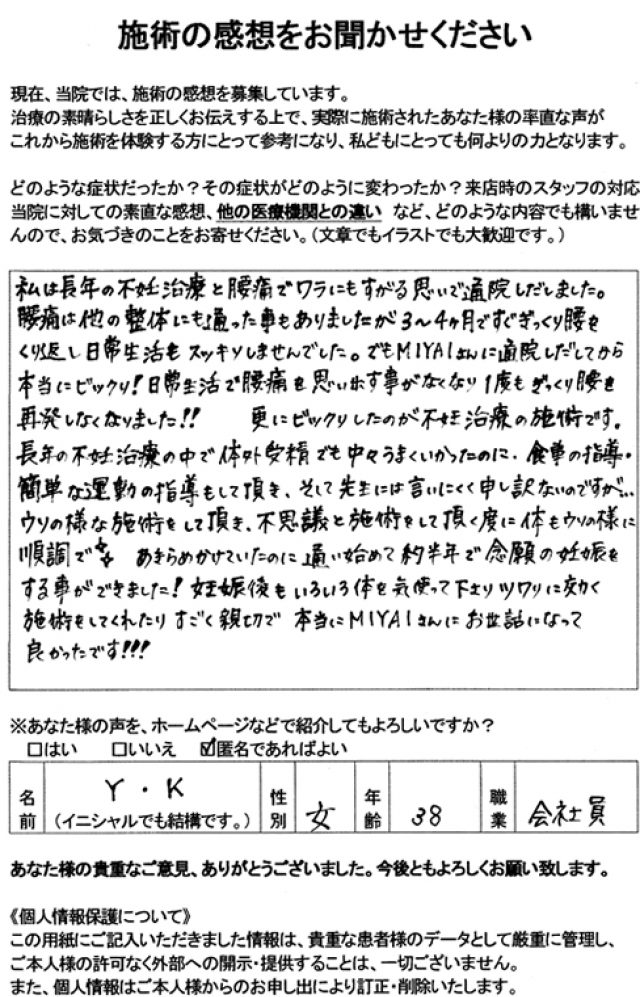 施術の感想をお聞かせください
現在、当院では、施術の感想を募集しています。
治療の素晴らしさを正しくお伝えする上で、実際に施術されたあなた様の率直な声が
これから施術を体験する方にとって参考になり、私どもにとっても何よりの力となります。
どのような症状だったか？その症状がどのように変わったか？来店時のスタッフの対応
当院に対しての素直な感想、他の医療機関との違い など、どのような内容でも構いませ
んので、お気づきのことをお寄せください。（文章でもイラストでも大歓迎です。）
私は長年の不妊治療と腰痛でワラにもすがる思いで通院しだしました。
腰痛は他の整体にも通った事もありましたが3〜4ヶ月ですぐぎっくり腰を
くり返し日常生活もスッキリしませんでした。でもMIYAIさんに通院しだしてから
本当にビックリ!日常生活で腰痛を思い出す事がなくなり1度もぎっくり腰を
再発しなくなりました!! 更にビックリしたのが不妊治療の施術です。
長年の不妊治療の中で体外受精でも中々うまくいかったのに、食事の指導・
簡単な運動の指導もして頂き、そして先生には言いにくく申し訳ないのですが…
ウソの様な施術をして頂き、不思議と施術をして頂く度に体もウソの様に
順調で あきらめかけていたのに通い始めて約半年で念願の妊娠を
する事ができました!妊娠後もいろいろ体を気使って下さりツワリに効く
施術をしてくれたりすごく親切で 本当にMIYAIさんにお世話になって
良かったです!!!
※あなた様の声を、ホームページなどで紹介してもよろしいですか？
□はい □いいえ ☑匿名であればよい
名前 Y・K （イニシャルでも結構です。） 性別 女 年齢 38 職業 会社員
あなた様の貴重なご意見、ありがとうございました。今後ともよろしくお願い致します。
《個人情報保護について》
この用紙にご記入いただきました情報は、貴重な患者様のデータとして厳重に管理し、
ご本人様の許可なく外部への開示・提供することは、一切ございません。
また、個人情報はご本人様からのお申し出により訂正・削除いたします。